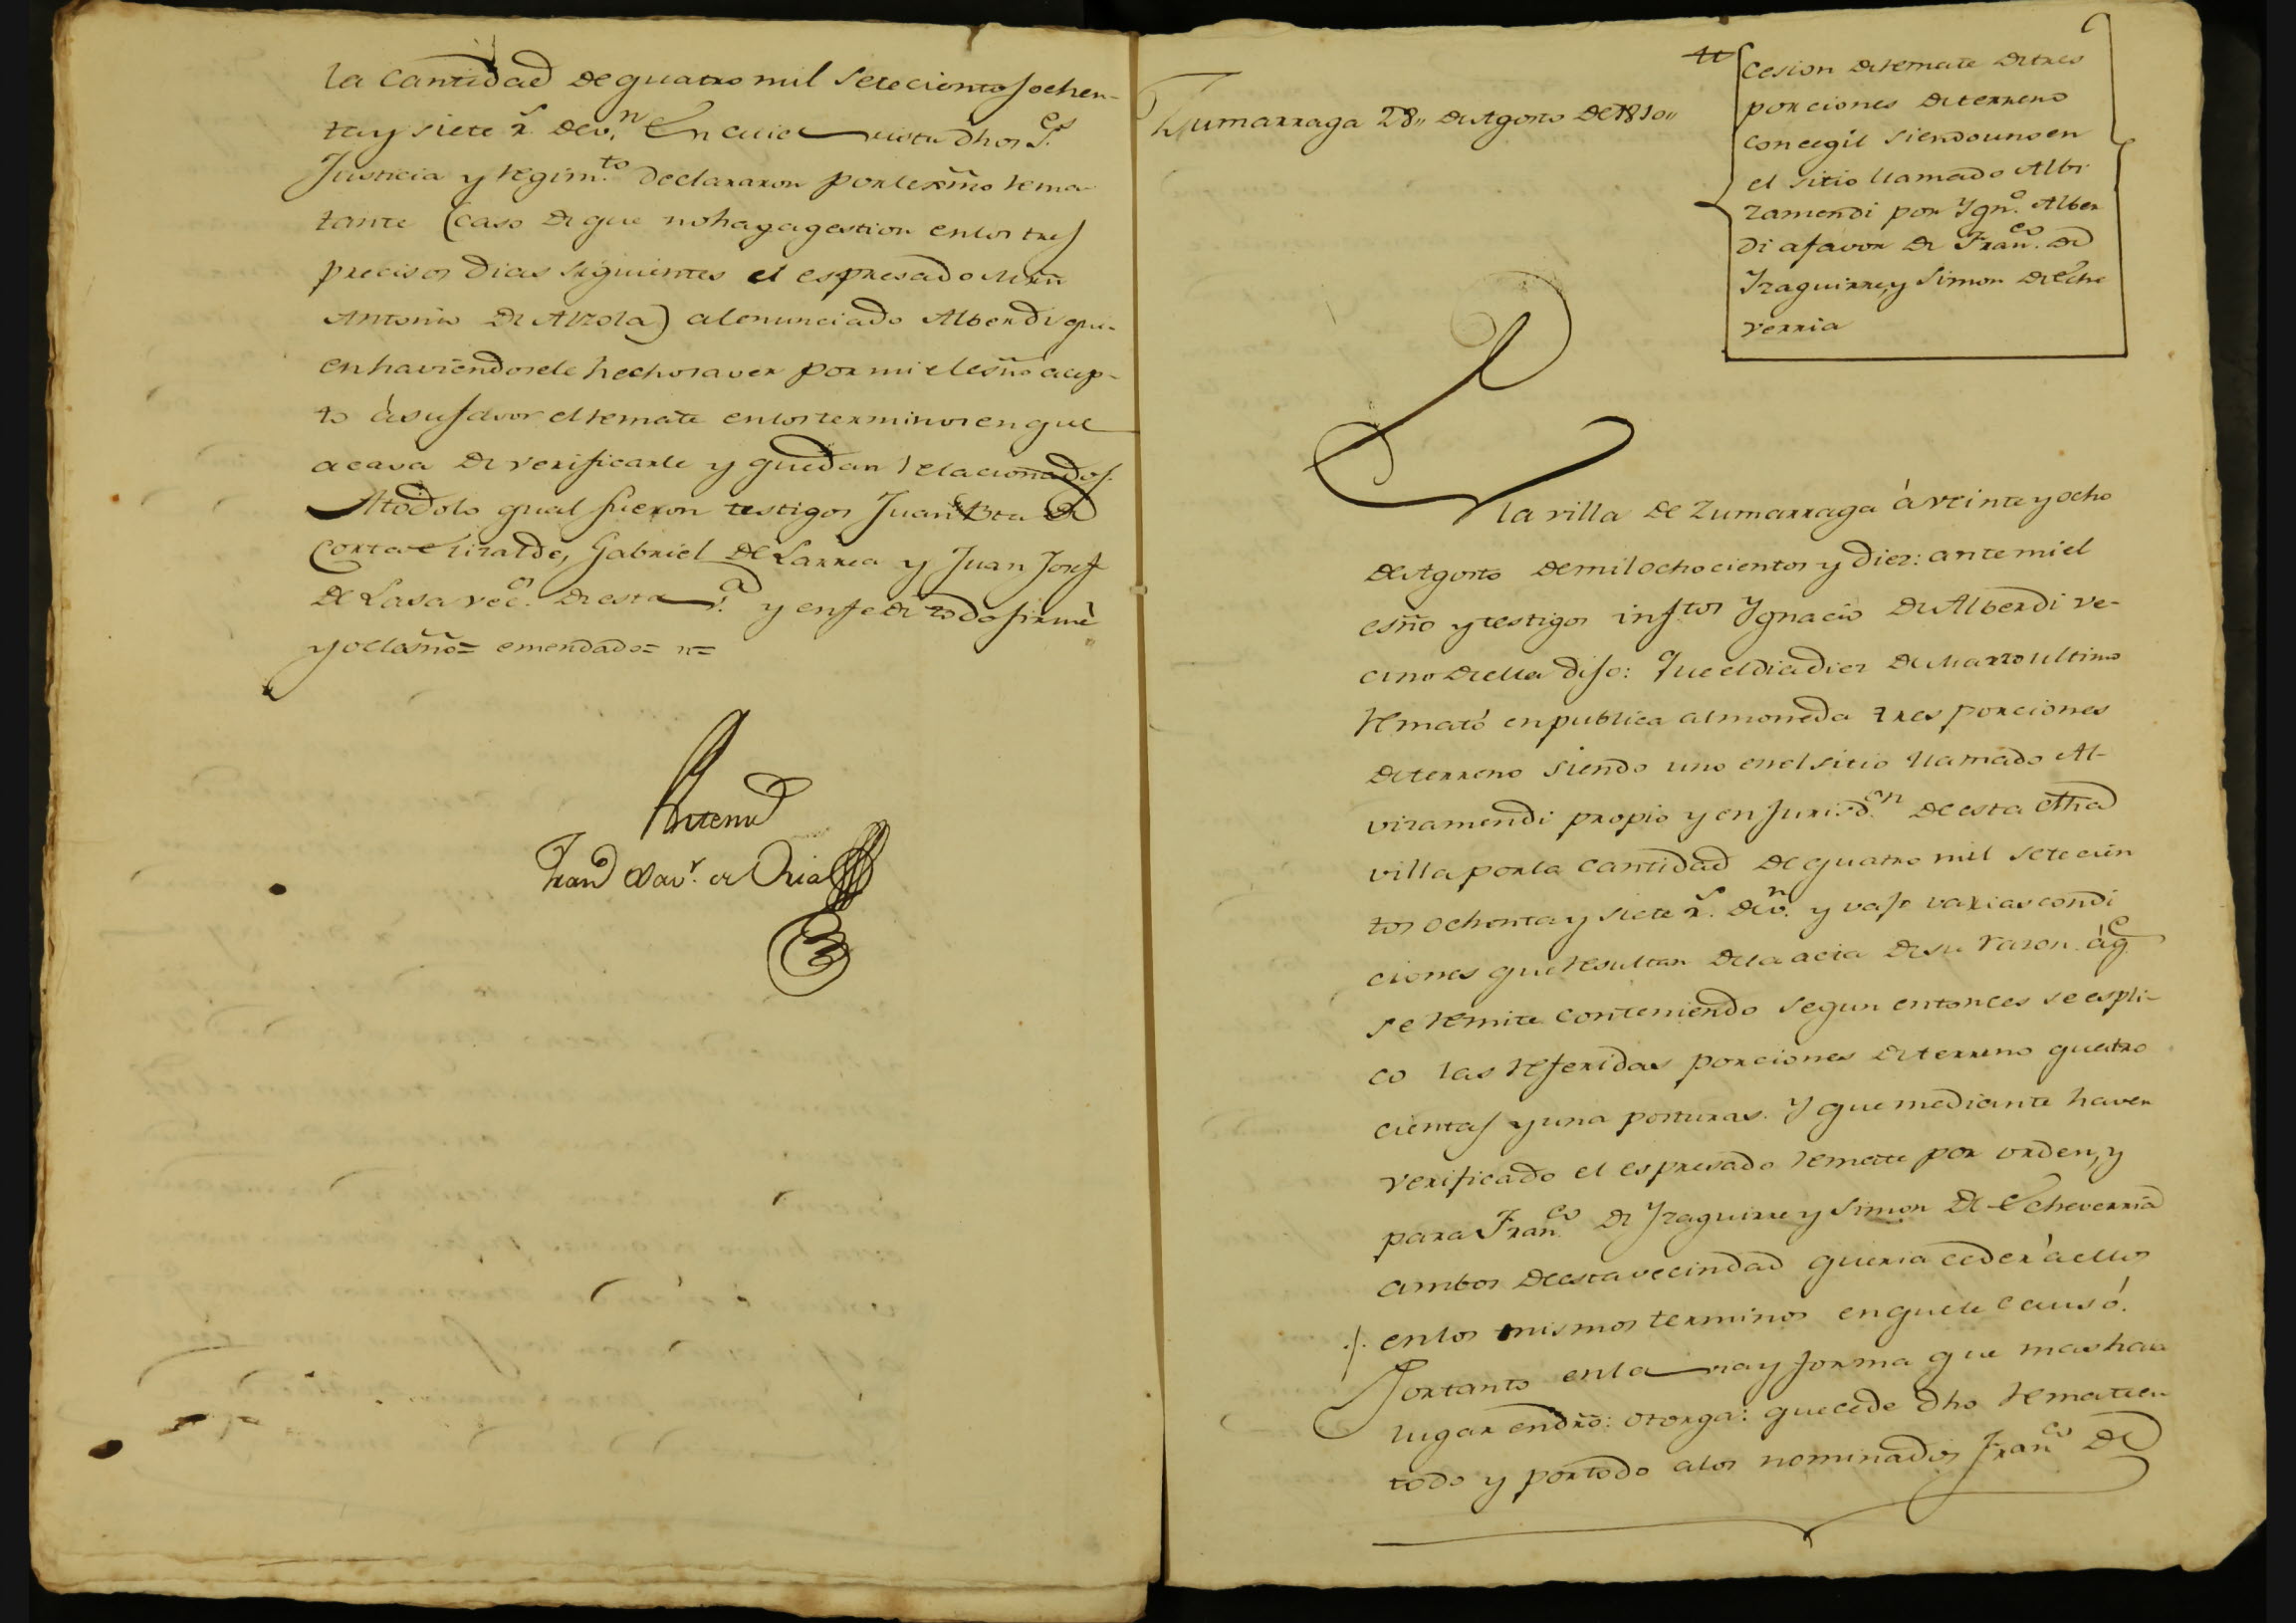 la cantidad de quatro mil setecientos ochen-
ta y siete r.s de v.n En cuia vista dhos S.es
Justicia y regim.to declararon por lexmo rema-
tante (caso de que no haga gestion en los tres
precisos dias siguientes el espresado Mrñ
Antonio de Alzola) al enunciado Alberdi qui-
en haviendosele hecho saver por mi el esño acep-
to à su favor el remate en los terminos en que
acava de verificarle y quedan relacionados.
A todo lo qual fueron testigos Juan Bta de
Corta e lizalde, Gabriel de Larrea y Juan Josef
de Lasa vec.s de esta v.a y en fe de todo firmè
yo el esño= emendado= n=
Antemi
Fran.co Xav.r de Oria
Zumarraga 28,, de Agosto de 1810,,
Cesion de remate de tres
porciones de terreno
concegil siendo uno en
el sitio llamado Albi
zamendi por Ygn.o Alber
di a favor de Fran.co de
Yzaguirre, y Simon de Eche
verria
En
la villa de Zumarraga à veinte y ocho
de Agosto de mil ochocientos y diez: ante mi el
esño y testigos inftos Ygnacio de Alberdi ve-
cino de ella dijo: Que el dia diez de Marzo ultimo
remató en publica almoneda tres porciones
de terreno siendo uno en el sitio llamado Al-
vizamendi propio y en jurisd.on de esta cthá
villa por la cantidad de quatro mil setecien
tos ochenta y siete r.s de v.n y vajo varias condi
ciones que resultan de la acta de su razon à q.e
se remite conteniendo segun entonces se espli-
co las referidas porciones de terreno quatro
cientas y una posturas. Y que mediante haver
verificado el espresado remate por orden, y
para Fran.co de Yzaguirre y Simon de Echeverria
ambos de esta vecindad queria ceder à ellos
./. en los mismos terminos en que le causó.
Portanto en la via y forma que mas haia
lugar en dro: otorga: que cede dho remate en
todo y por todo a los nominados Fran.co de